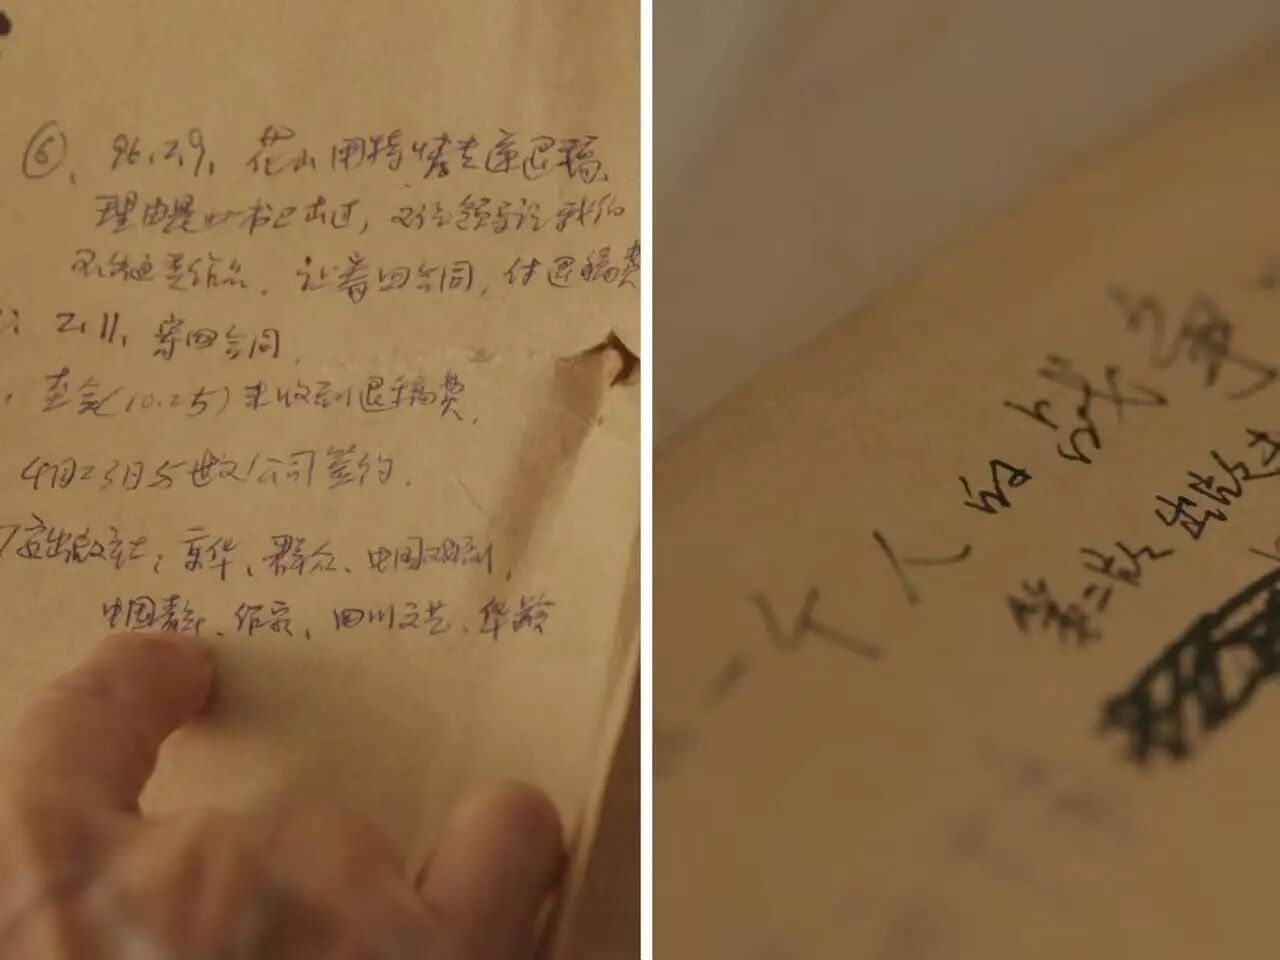 ⑥、96.2.9,花山用特快专递退稿、
理由是此书已出过,又经领导说我们
不知道作品.让寄回合同,付退稿费
2.11,寄回合同.
至今(10.25)未收到退稿费,
4月23日与 公司签约.
出版社:京华、群众、中国戏剧,
中国青年、作家、四川文艺、华龄
一个人的战争
第二次出版